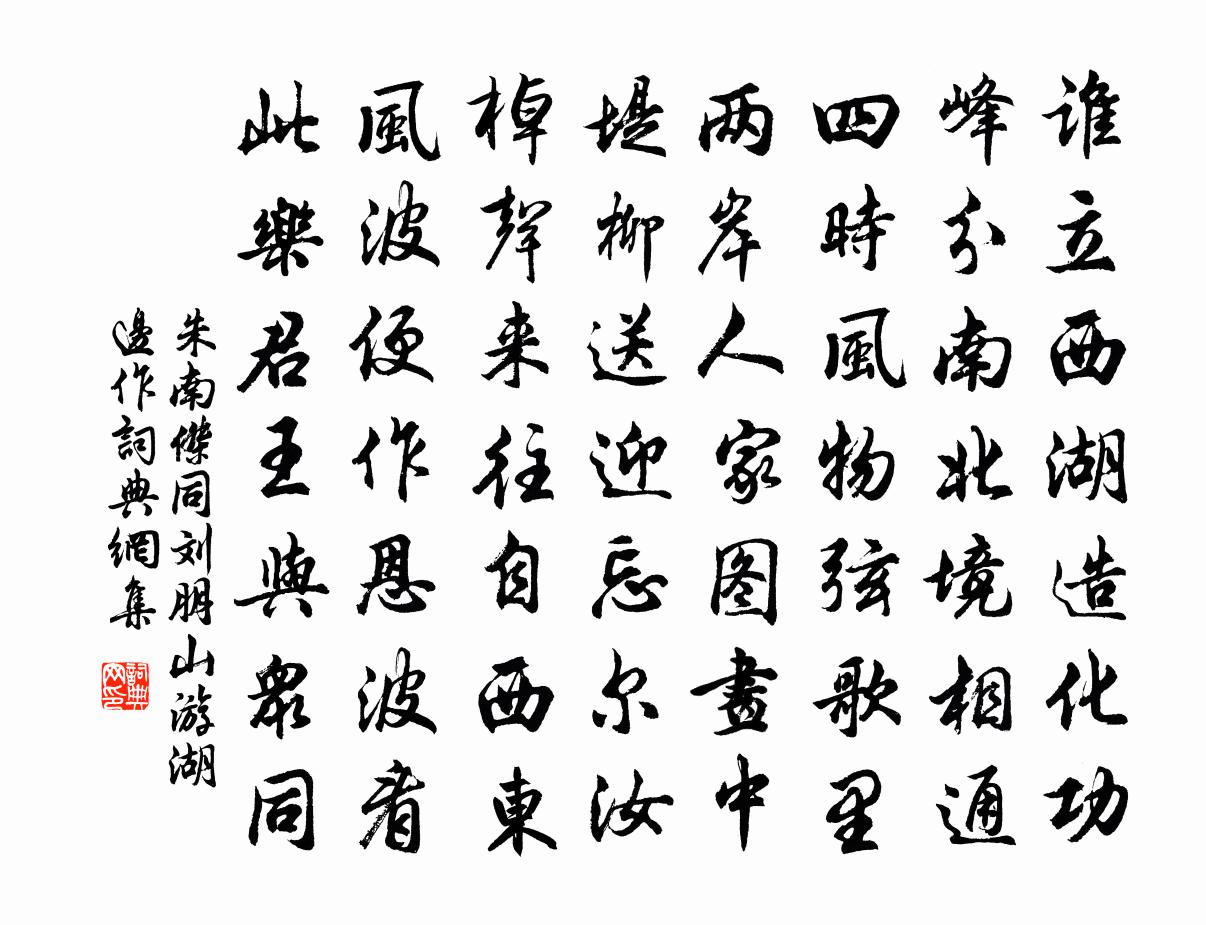 谁立西湖造化功
峰分南北境相通
四時風物弦歌里
两岸人家图畫中
堤柳送迎忘尔汝
棹聲来往自西東
風波便作恩波看
此樂君王與衆同
朱南傑同刘朋山游湖
邊作詞典網集
詞典网印